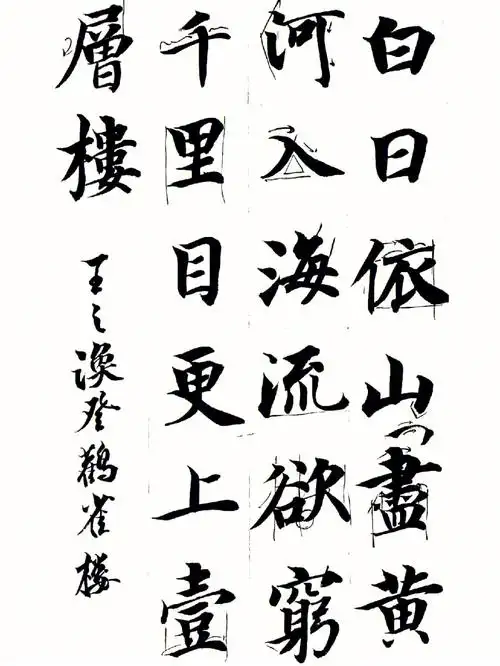 白日依山盡黄
河入海流欲窮
千里目更上壹
層樓
王之渙登鸛雀樓